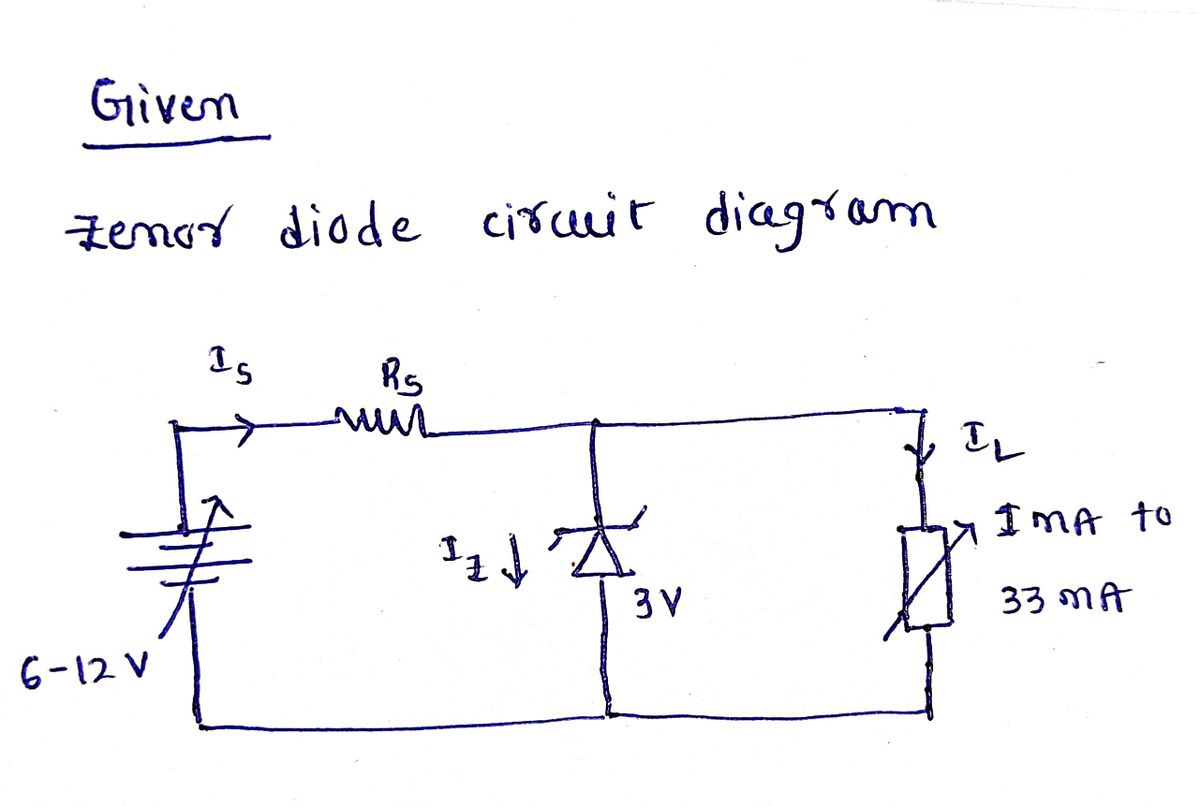 Given
Zenor diode circuit diagram
Is Rs
IL
Iz
1 mA to
3V
33 mA
6-12 V